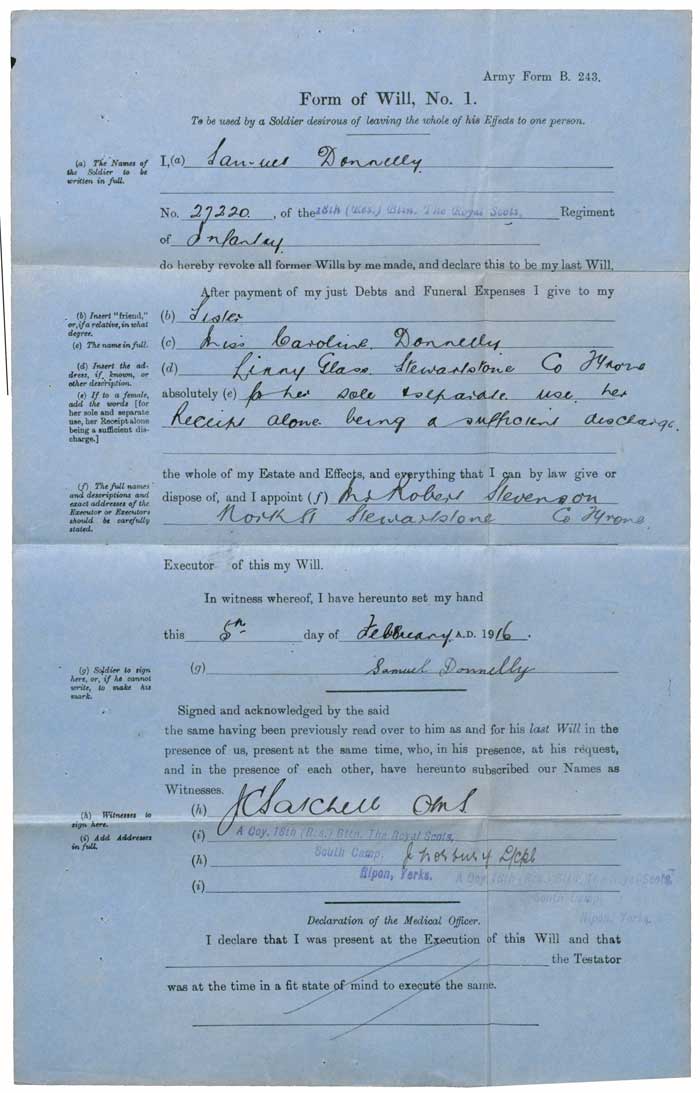 Army Form B. 243.
Form of Will, No. 1.
To be used by a Soldier desirous of leaving the whole of his Effects to one person.
(a) The Names of
the Soldier to be
written in full.
I, (a) Samuel Donnelly
No. 27220, of the 18th (Res.) Bttn. The Royal Scots, Regiment
of Infantry
do hereby revoke all former Wills by me made, and declare this to be my last Will.
After payment of my just Debts and Funeral Expenses I give to my
(b) Insert "friend,"
or, if a relative, in what
degree.
(c) The name in full.
(d) Insert the ad-
dress, if known, or
other description.
(e) If to a female,
add the words [for
her sole and separate
use, her Receipt alone
being a sufficient dis-
charge.]
(b) Sister
(c) Miss Caroline Donnelly
(d) Linny Glass Stewartstone Co Tyrone
absolutely (e) for her sole & separate use her
Receipt alone being a sufficient discharge.
the whole of my Estate and Effects, and everything that I can by law give or
dispose of, and I appoint (f) Mr Robert Stevenson
North St Stewartstone Co Tyrone
(f) The full names
and descriptions and
exact addresses of the
Executor or Executors
should be carefully
stated.
Executor of this my Will.
In witness whereof, I have hereunto set my hand
this 5th day of February A.D. 1916.
(g) Soldier to sign
here, or, if he cannot
write, to make his
mark.
(g) Samuel Donnelly
Signed and acknowledged by the said
the same having been previously read over to him as and for his last Will in the
presence of us, present at the same time, who, in his presence, at his request,
and in the presence of each other, have hereunto subscribed our Names as
Witnesses.
(h) Witnesses to
sign here.
(i) Add Addresses
in full.
(h) J C Satchell
(i) A Coy. 18th (Res.) Bttn. The Royal Scots,
South Camp,
Ripon, Yorks.
(h) J Norbury L/cpl
(i) A Coy 18th (Res.) Bttn. The Royal Scots,
South Camp,
Ripon, Yorks.
Declaration of the Medical Officer.
I declare that I was present at the Execution of this Will and that
the Testator
was at the time in a fit state of mind to execute the same.